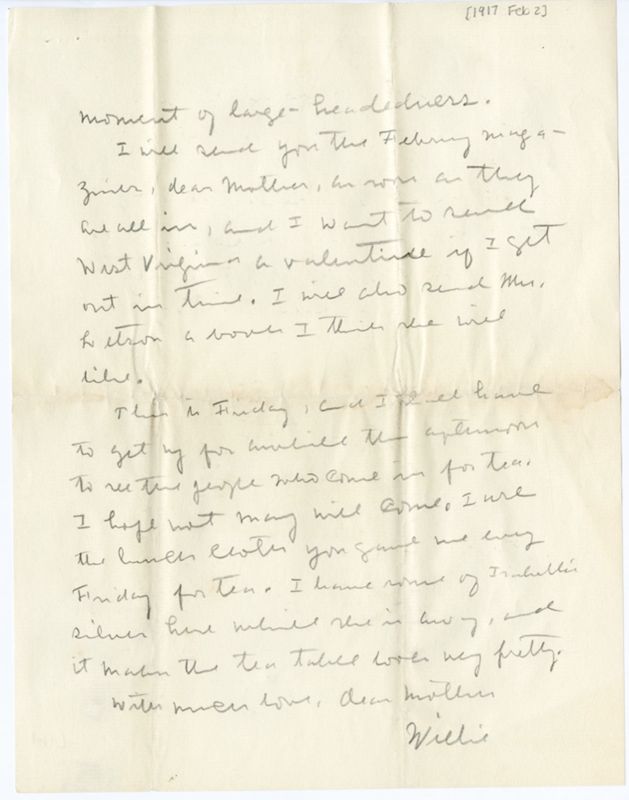 [1917 Feb 2]
moment of large-headedness.
I will send you the February maga-
zines, dear Mother, as soon as they
are all in, and I want to send
West Virginia a valentine if I get
out in time. I will also send Mrs.
Letson a book I think she will
like.
This is Friday, and I shall have
to get up for awhile this afternoon
to see the people who come in for tea.
I hope not many will come. I use
the lunch cloths you gave me every
Friday for tea. I have some of Isabelle's
silver here while she is away, and
it makes the tea table look very pretty.
With much love, dear Mother
Willie